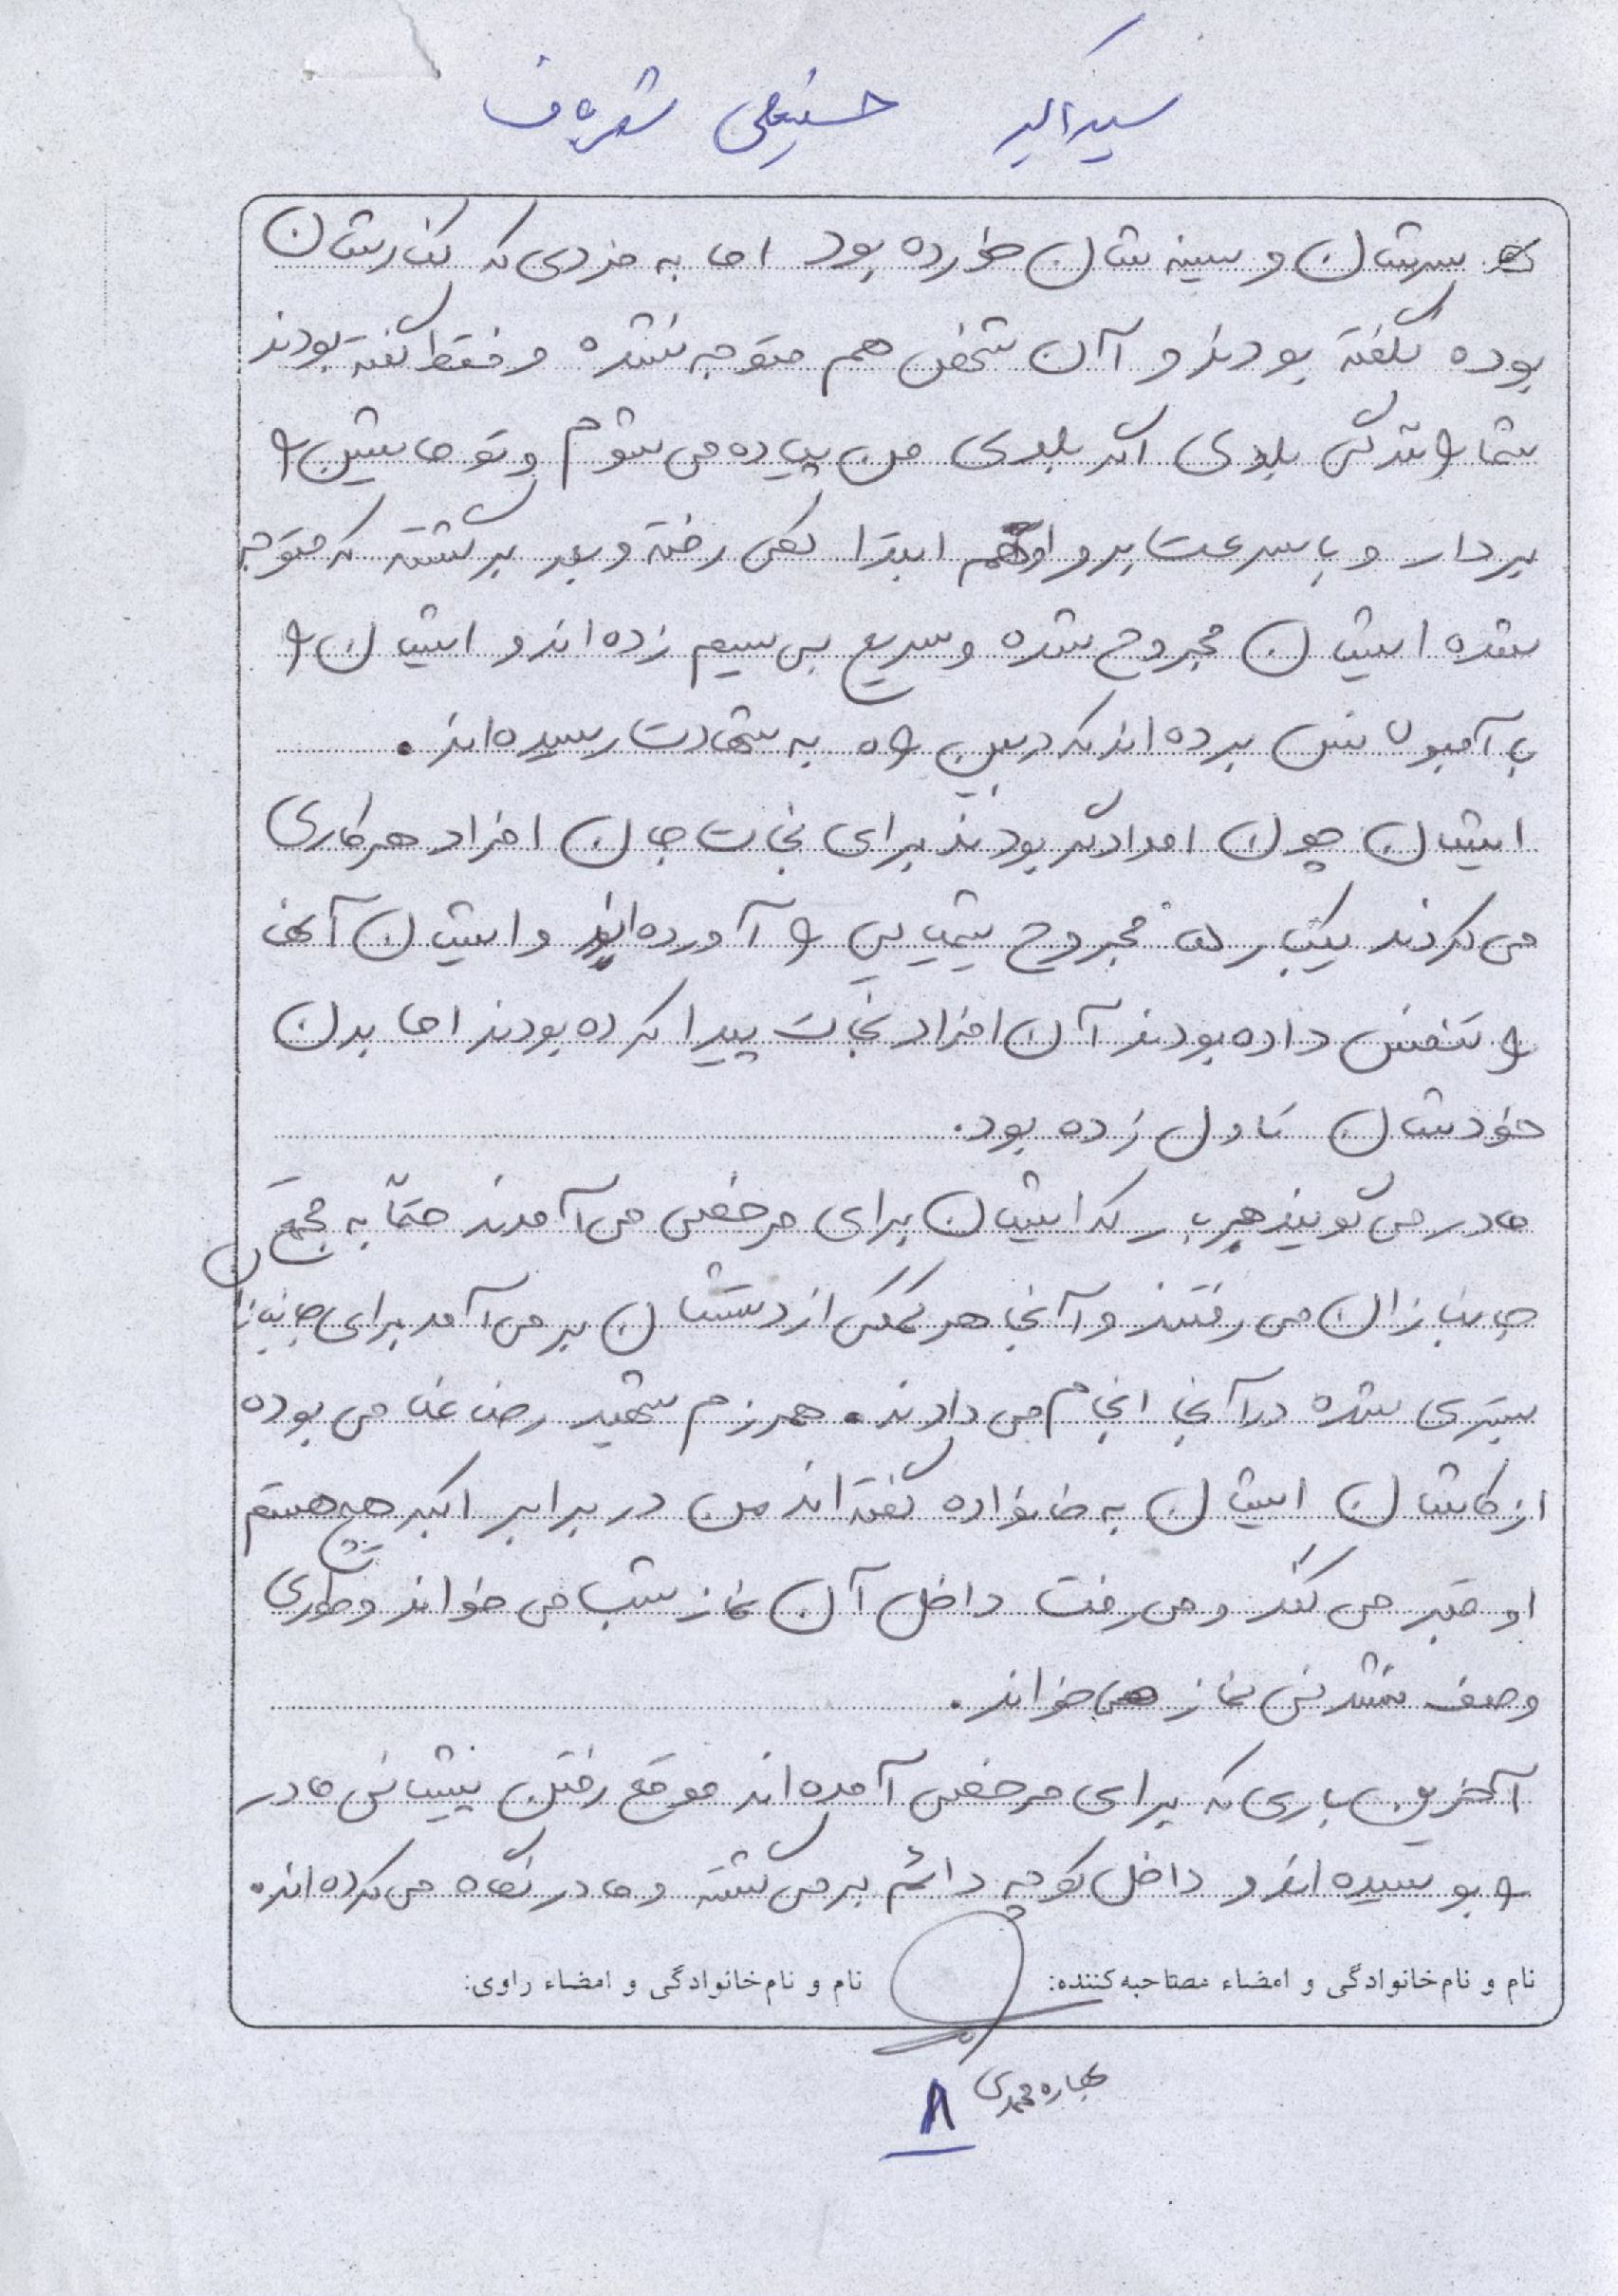 سید اکبر حسینعلی شعرباف
سرشان و سینه شان خورده بود اما به فردی که کنارشان
بوده نگفته بودند و آن شخص هم متوجه نشده و فقط گفته بودند
شما رانندگی بلدی اگر بلدی من پیاده می شوم و تو ماشین را
بردار و با سرعت برو او هم ابتدا کمی رفته و بعد برگشته که متوجه
شده ایشان مجروح شده و سریع بی سیم زده اند و ایشان را
با آمبولانس برده اند که در بین راه به شهادت رسیده اند.
ایشان چون امدادگر بودند برای نجات جان افراد هرکاری
می کردند یکبار ۵ مجروح شیمیایی را آورده اند و ایشان آنها
را تنفس داده بودند آن افراد نجات پیدا کرده بودند اما بدن
خودشان تاول زده بود.
مادر می گویند هربار که ایشان برای مرخصی می آمدند حتماً به مجتمع
جانبازان می رفتند و آنجا هر کمکی از دستشان بر می آمد برای جانبازان
بستری شده در آنجا انجام می دادند. همرزم شهید رضا غلامی بوده
از کاشان ایشان به خانواده گفته اند من در برابر اکبر هیچ هستم
او قبر می کند و می رفت داخل آن نماز شب می خواند و طوری
وصف نشدنی نماز می خواند.
آخرین باری که برای مرخصی آمده اند موقع رفتن پیشانی مادر
را بوسیده اند و داخل کوچه دائم بر می گشته و مادر نگاه می کرده اند.
نام و نام‌خانوادگی و امضاء مصاحبه‌کننده: نام و نام‌خانوادگی و امضاء راوی:
بهاره محمدی
۸